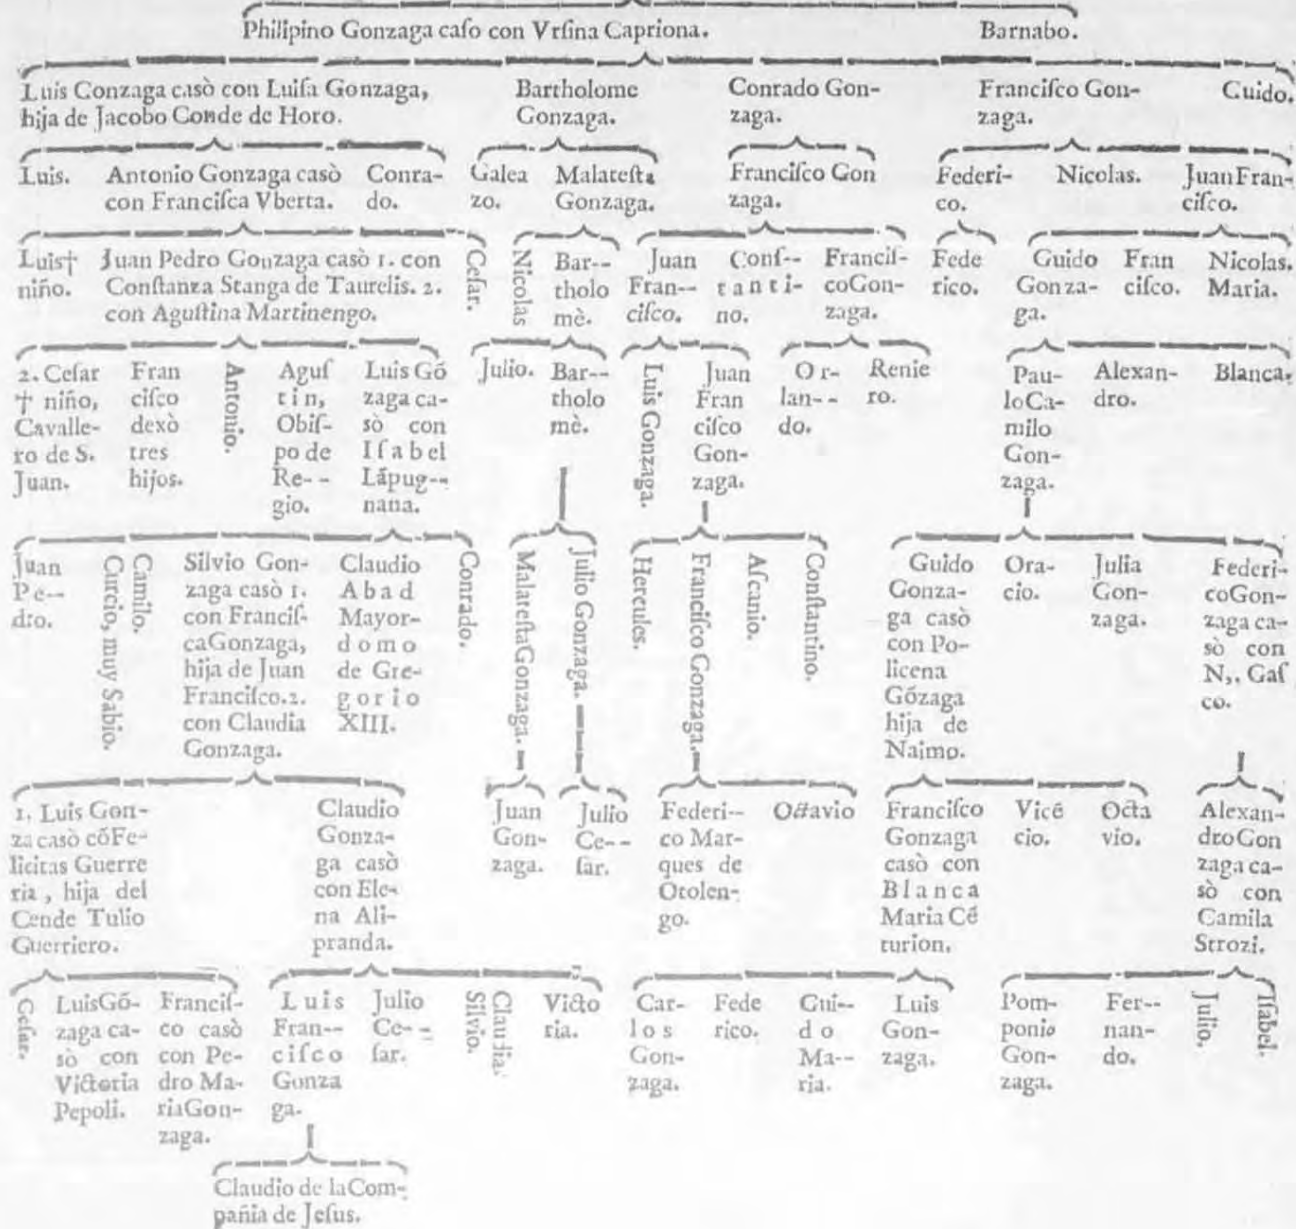 Philipino Gonzaga caſo con Vrſina Capriona.
Barnabo.
Luis Conzaga casò con Luiſa Gonzaga,
hija de Jacobo Conde de Horo.
Bartholome
Gonzaga.
Conrado Gon-
zaga.
Franciſco Gon-
zaga.
Cuido.
Luis.
Antonio Gonzaga casò
con Franciſca Vberta.
Conra-
do.
Galea
zo.
Malateſta
Gonzaga.
Franciſco Gon
zaga.
Federi-
co.
Nicolas.
JuanFran-
ciſco.
Luis†
niño.
Juan Pedro Gonzaga casò 1. con
Conſtanza Stanga de Taurelis. 2.
con Aguſtina Martinengo.
Ceſar.
Nicolas
Bar--
tholo
mè.
Juan
Fran--
ciſco.
Conſ--
tanti-
no.
Franciſ-
coGon-
zaga.
Fede
rico.
Guido
Gonza-
ga.
Fran
ciſco.
Nicolas.
Maria.
2. Ceſar
† niño,
Cavalle-
ro de S.
Juan.
Fran
ciſco
dexò
tres
hijos.
Antonio.
Aguſ
tin,
Obiſ-
po de
Re--
gio.
Luis Gó
zaga ca-
sò con
Iſabel
Lápug--
nana.
Julio.
Bar--
tholo
mè.
Luis Gonzaga.
Juan
Fran
ciſco
Gon-
zaga.
Or-
lan--
do.
Renie
ro.
Pau-
loCa-
milo
Gon-
zaga.
Alexan-
dro.
Blanca.
Juan
Pe--
dro.
Camilo.
Curcio, muy Sabio.
Silvio Gon-
zaga casò 1.
con Franciſ-
caGonzaga,
hija de Juan
Franciſco.2.
con Claudia
Gonzaga.
Claudio
Abad
Mayor-
domo
de Gre-
gorio
XIII.
Conrado.
MalateſtaGonzaga.
Julio Gonzaga.
Hercules.
Franciſco Gonzaga.
Aſcanio.
Conſtantino.
Guido
Gonza-
ga casò
con Po-
licena
Gózaga
hija de
Naimo.
Ora-
cio.
Julia
Gon-
zaga.
Federi-
coGon-
zaga ca-
sò con
N,. Gaſ
co.
1. Luis Gon-
za casò cóFe-
licitas Guerre
ria, hija del
Cende Tulio
Guerriero.
Claudio
Gonza-
ga casò
con Ele-
na Ali-
pranda.
Juan
Gon-
zaga.
Julio
Ce--
ſar.
Federi--
co Mar-
ques de
Otolen-
go.
Octavio
Franciſco
Gonzaga
casò con
Blanca
Maria Cé
turion.
Vicé
cio.
Octa
vio.
Alexan-
droGon
zaga ca-
sò con
Camila
Strozi.
Ceſar.
LuisGó-
zaga ca-
sò con
Victoria
Pepoli.
Franciſ-
co casò
con Pe-
dro Ma-
riaGon-
zaga.
Luis
Fran--
ciſco
Gonza
ga.
Julio
Ce--
ſar.
Claudia.
Silvio.
Victo
ria.
Car-
los
Gon-
zaga.
Fede
rico.
Gui--
do
Ma--
ria.
Luis
Gon-
zaga.
Pom-
ponio
Gon-
zaga.
Fer--
nan-
do.
Julio.
Iſabel.
Claudio de laCom-
pañia de Jeſus.